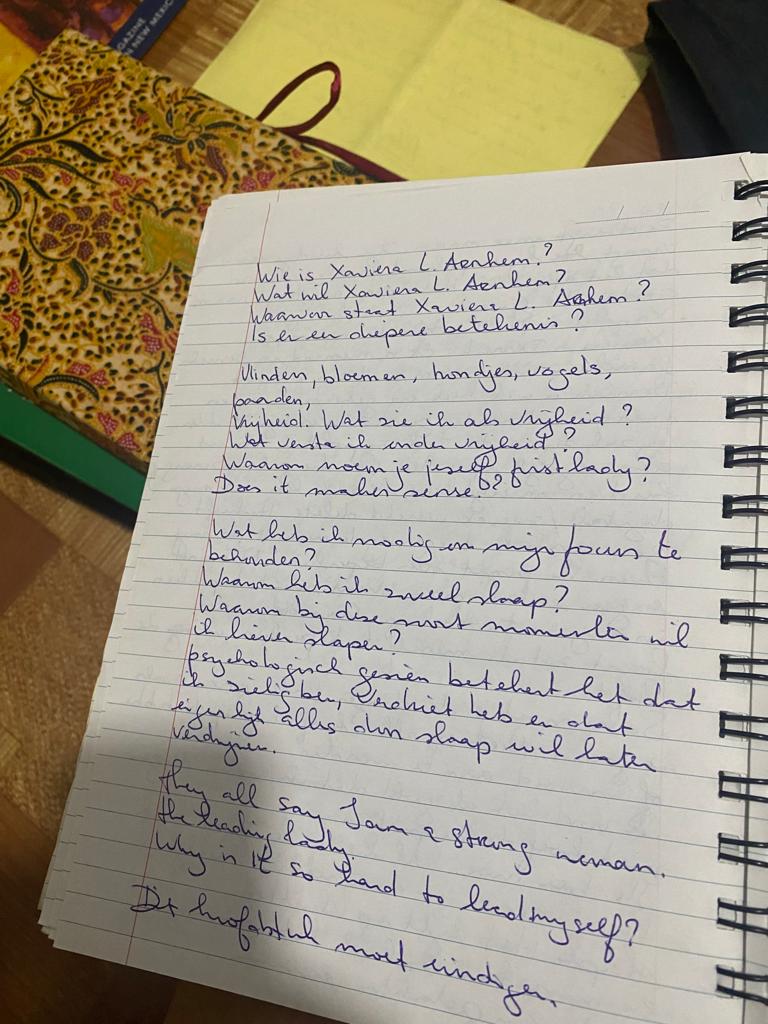 AGAZINE
N NEW MEXIC
Wie is Xaviera L. Aenhem?
Wat wil Xaviera L. Aenhem?
Waarvan staat Xaviera L. Aenhem?
Is er en diepere betekenis?
Vlinden, bloemen, hondjes, vogels,
paarden,
Vrijheid. Wat zie ik als vrijheid?
Wat versta ik onder vrijheid?
Waarom noem je jezelf first lady?
Does it makes sense??
Wat heb ik nodig om mijn focus te
behouden?
Waarom heb ik zoveel slaap?
Waarom bij deze soort momenten wil
ik liever slapen?
psychologisch gezien betekent het dat
ik zielig ben, verdriet heb en dat
eigenlijk alles dmv slaap wil laten
verdwijnen.
they all say I am a strong woman.
the leading lady.
Why is it so hard to lead myself?
Dit hoofdstuk moet eindigen.